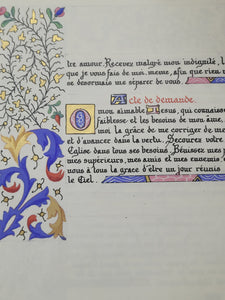 tre amour. Recevez malgré mon indignité, l
que je vous fais de moi-même, afin que rien n
se désormais me séparer de vous.
Acte de demande.
O mon aimable Jesus, qui connaisse
faiblesse et les besoins de mon âme,
moi la grâce de me corriger de me
et d'avancer dans la vertu. Secourez votre
Eglise dans tous ses besoins. Bénissez mes p
mes supérieurs, mes amis et mes ennemis,
nous à tous la grace d'être un jour réunis
le Ciel.